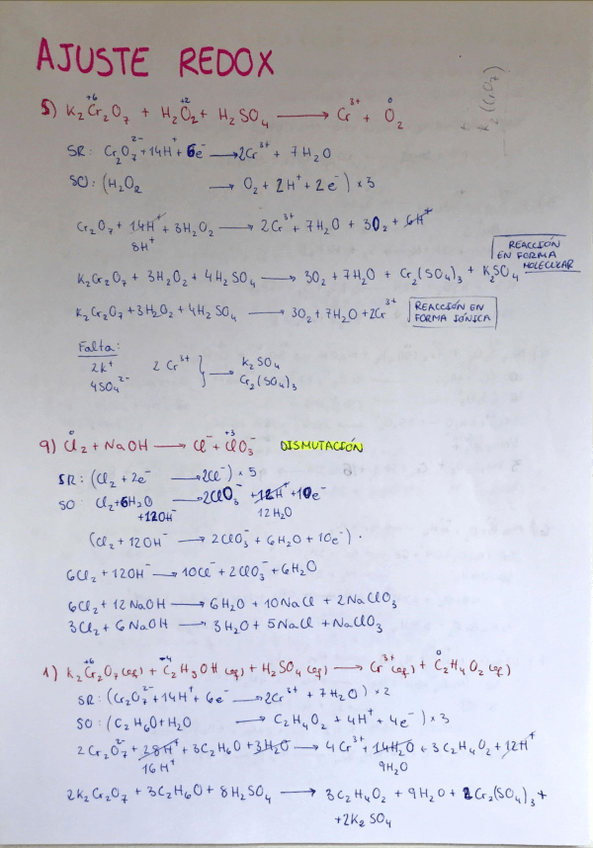 AJUSTE REDOX
5) K₂Cr₂O₇ + H₂O₂ + H₂SO₄ → Cr³⁺ + O₂
+6 +2 0
SR: Cr₂O₇²⁻ + 14H⁺ + 6e⁻ → 2Cr³⁺ + 7H₂O
SO: (H₂O₂ → O₂ + 2H⁺ + 2e⁻) × 3
Cr₂O₇ + 14H⁺ + 3H₂O₂ → 2Cr³⁺ + 7H₂O + 3O₂ + 6H⁺
8H⁺
K₂Cr₂O₇ + 3H₂O₂ + 4H₂SO₄ → 3O₂ + 7H₂O + Cr₂(SO₄)₃ + K₂SO₄
REACCIÓN EN FORMA MOLECULAR
K₂Cr₂O₇ + 3H₂O₂ + 4H₂SO₄ → 3O₂ + 7H₂O + 2Cr³⁺
REACCIÓN EN FORMA IÓNICA
Falta:
2K⁺ 2Cr³⁺ } → K₂SO₄
4SO₄²⁻ Cr₂(SO₄)₃
9) Cl₂ + NaOH → Cl⁻ + ClO₃⁻ DISMUTACIÓN
0 +3
SR: (Cl₂ + 2e⁻ → 2Cl⁻) × 5
SO: Cl₂ + 6H₂O → 2ClO₃⁻ + 12H⁺ + 10e⁻
+12OH⁻ 12H₂O
(Cl₂ + 12OH⁻ → 2ClO₃⁻ + 6H₂O + 10e⁻) ·
6Cl₂ + 12OH⁻ → 10Cl⁻ + 2ClO₃⁻ + 6H₂O
6Cl₂ + 12NaOH → 6H₂O + 10NaCl + 2NaClO₃
3Cl₂ + 6NaOH → 3H₂O + 5NaCl + NaClO₃
1) K₂Cr₂O₇(aq) + C₂H₅OH(aq) + H₂SO₄(aq) → Cr³⁺(aq) + C₂H₄O₂(aq)
+6 -4 0
SR: (Cr₂O₇²⁻ + 14H⁺ + 6e⁻ → 2Cr³⁺ + 7H₂O) × 2
SO: (C₂H₆O + H₂O → C₂H₄O₂ + 4H⁺ + 4e⁻) × 3
2Cr₂O₇²⁻ + 28H⁺ + 3C₂H₆O + 3H₂O → 4Cr³⁺ + 14H₂O + 3C₂H₄O₂ + 12H⁺
16H⁺ 9H₂O
2K₂Cr₂O₇ + 3C₂H₆O + 8H₂SO₄ → 3C₂H₄O₂ + 9H₂O + 2Cr₂(SO₄)₃ +
+2K₂SO₄